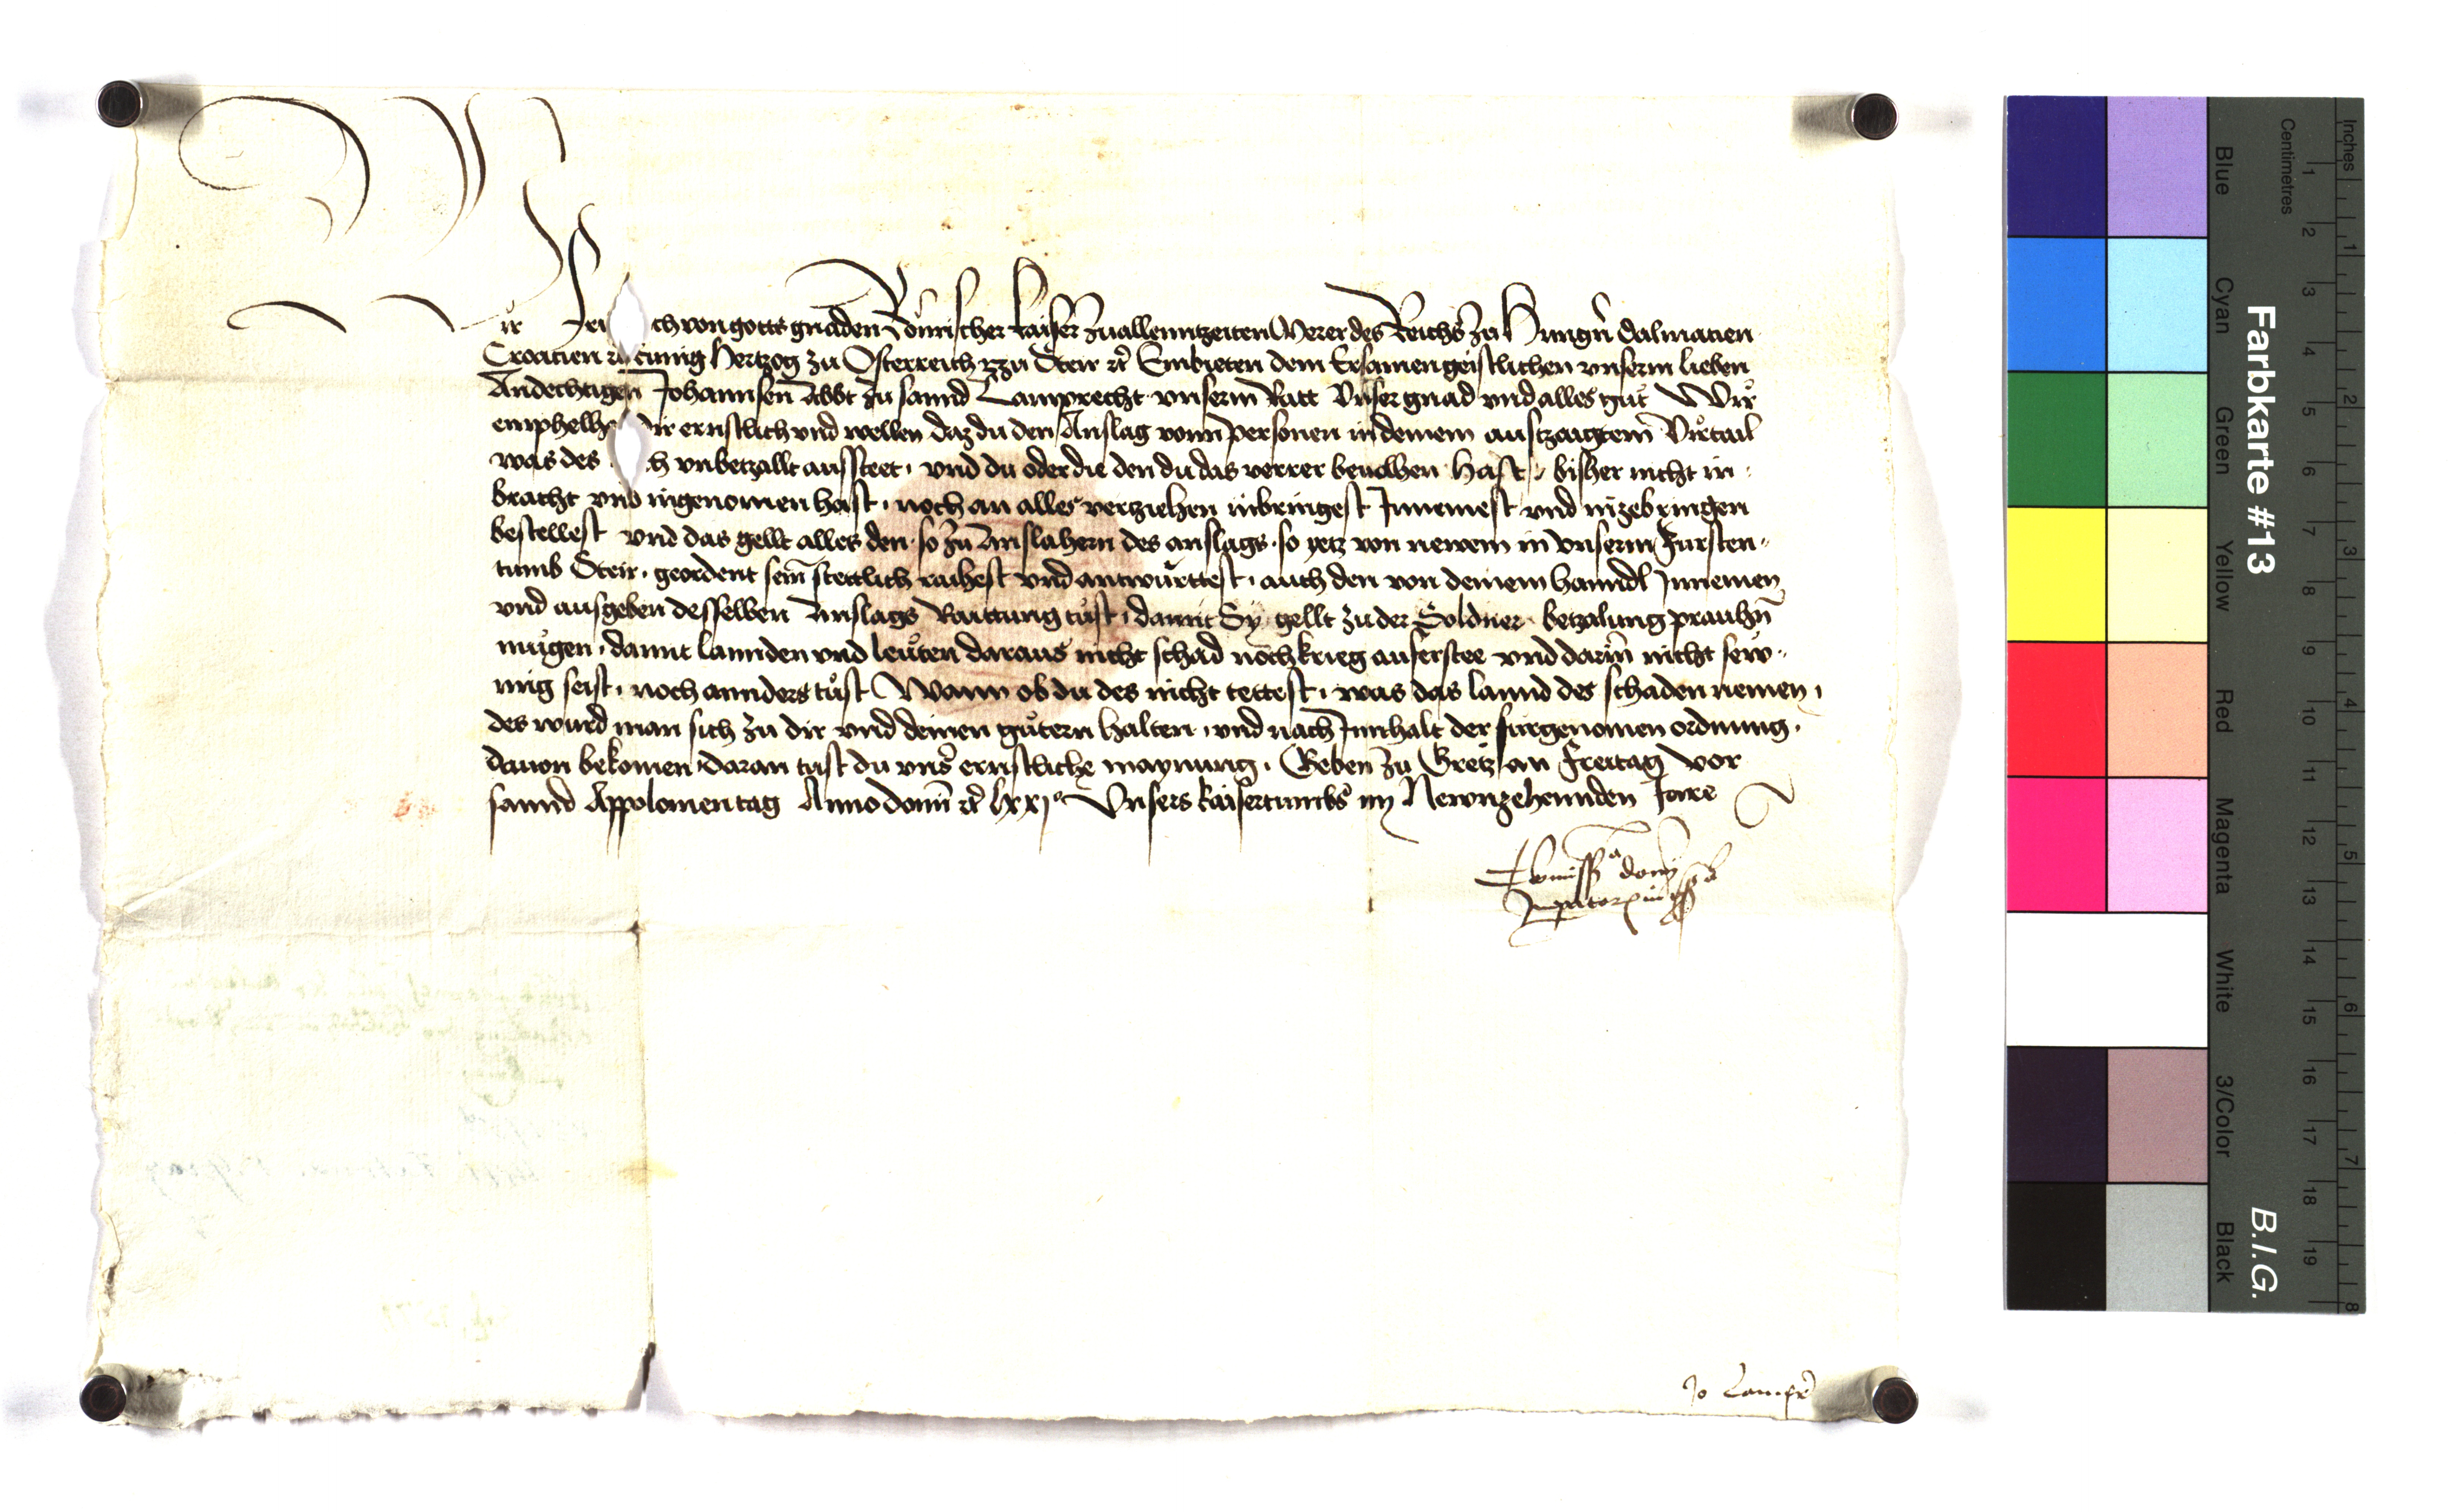 Wir Fri ch von gotts gnaden Römischer kaiser zuallenntzeiten Merer des Reichs zu Hungrn̄ Dalmacien
Croacien ꝛc kunig Hertzog zu Osterreich vnd zu Steir ꝛc Embieten dem Ersamen geistlichen vnserm lieben
Andechtigen Johannsen Abbt zu sannd Lamprecht vnserm Ratt Vnser gnad vnd alles gut Wir
emphelhe dir ernstlich vnd wellen daz du den Anslag vonn personen in deinem auszaigtem Virtail
was des h vnbetzallt aussteet, vnd du oder die den du das verrer beuolhen hast, bisher nicht in
bracht vnd ingenomen hast, noch an alles verziehen inbringest Innemest vnd inzebringen
bestellest vnd das gellt alles den so zu Anslahern des anslags so yetz von newem in vnserm Fursten
tumb Steir geordent sein stettlich raihest vnd antwurttest, auch den von deinem hanndl Innemen
vnd ausgeben desselben Anslags Raittung tust, damit Sy gellt zu der Soldner betzalung prauhn̄
mugen, damit lannden vnd leuten daraus nicht schad noch krieg auferstee vnd darin̄ nicht sew
mig seist, noch annders tust Wann ob du des nicht tettest, was das lannd des schaden nemen,
des wurd man sich zu dir vnd deinen gutern halten, vnd nach Innhalt der furgenomen ordnung,
dauon bekomen, daran tust du vnsˀ ernstliche maynung. Geben zu Gretz an Freitag vor
sannd Appolonien tag Anno domī ꝛc lxxjº Vnsers kaisertumbs im Newnzehennden Jare
Com̄issio domī
Imperatoris in
Jo Lampr
Farbkarte #13
B.I.G.
Inches
Centimetres
1 2 3 4 5 6 7 8 9 10 11 12 13 14 15 16 17 18 19
1 2 3 4 5 6 7 8
Blue
Cyan
Green
Yellow
Red
Magenta
White
3/Color
Black